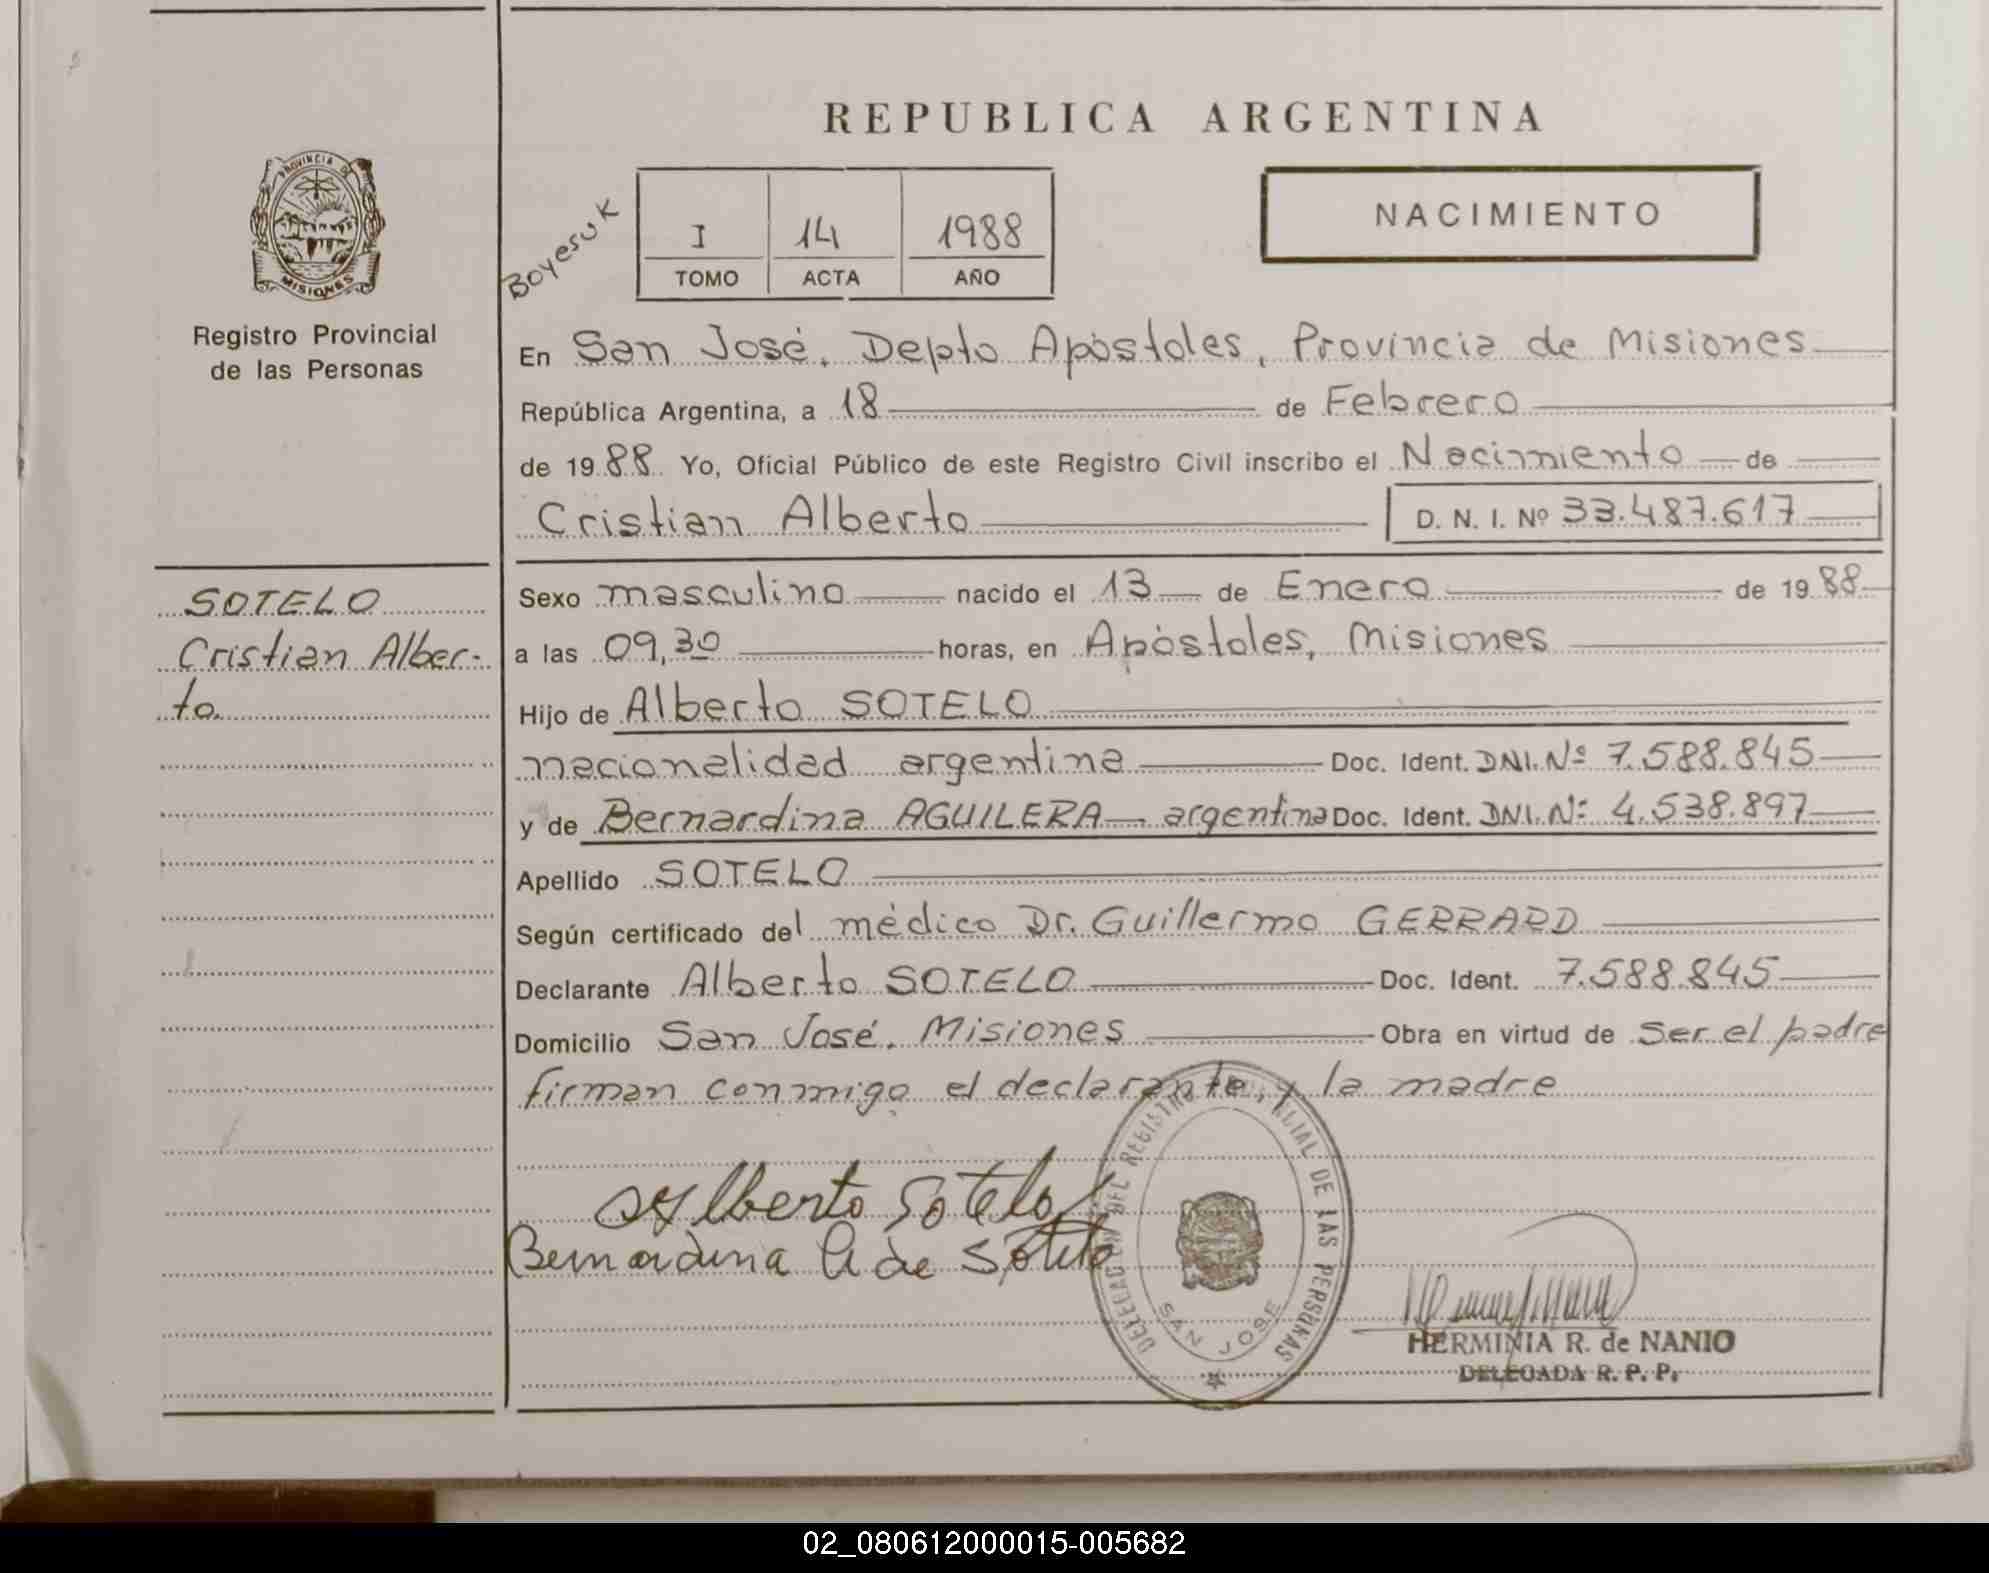 REPUBLICA ARGENTINA
PROVINCIA DE
MISIONES
Registro Provincial
de las Personas
Boyesuk
I 14 1988
TOMO ACTA AÑO
NACIMIENTO
En San José, Depto Apóstoles, Provincia de Misiones
República Argentina, a 18 de Febrero
de 19 88 Yo, Oficial Público de este Registro Civil inscribo el Nacimiento de
Cristian Alberto D. N. I. Nº 33.487.617
SOTELO
Cristian Alber-
to.
Sexo masculino nacido el 13 de Enero de 19 88
a las 09,30 horas, en Apóstoles, Misiones
Hijo de Alberto SOTELO
nacionalidad argentina Doc. Ident. DNI. Nº 7.588.845
y de Bernardina AGUILERA argentina Doc. Ident. DNI. Nº 4.538.897
Apellido SOTELO
Según certificado del médico Dr. Guillermo GERRARD
Declarante Alberto SOTELO Doc. Ident. 7.588.845
Domicilio San José, Misiones Obra en virtud de Ser el padre
firman conmigo el declarante, y la madre
Alberto Sotelo
Bernardina A de Sotelo
DELEGACION DEL REGISTRO PROVINCIAL DE LAS PERSONAS
SAN JOSE
HERMINIA R. de NANIO
DELEGADA R. P. P.
02_080612000015-005682